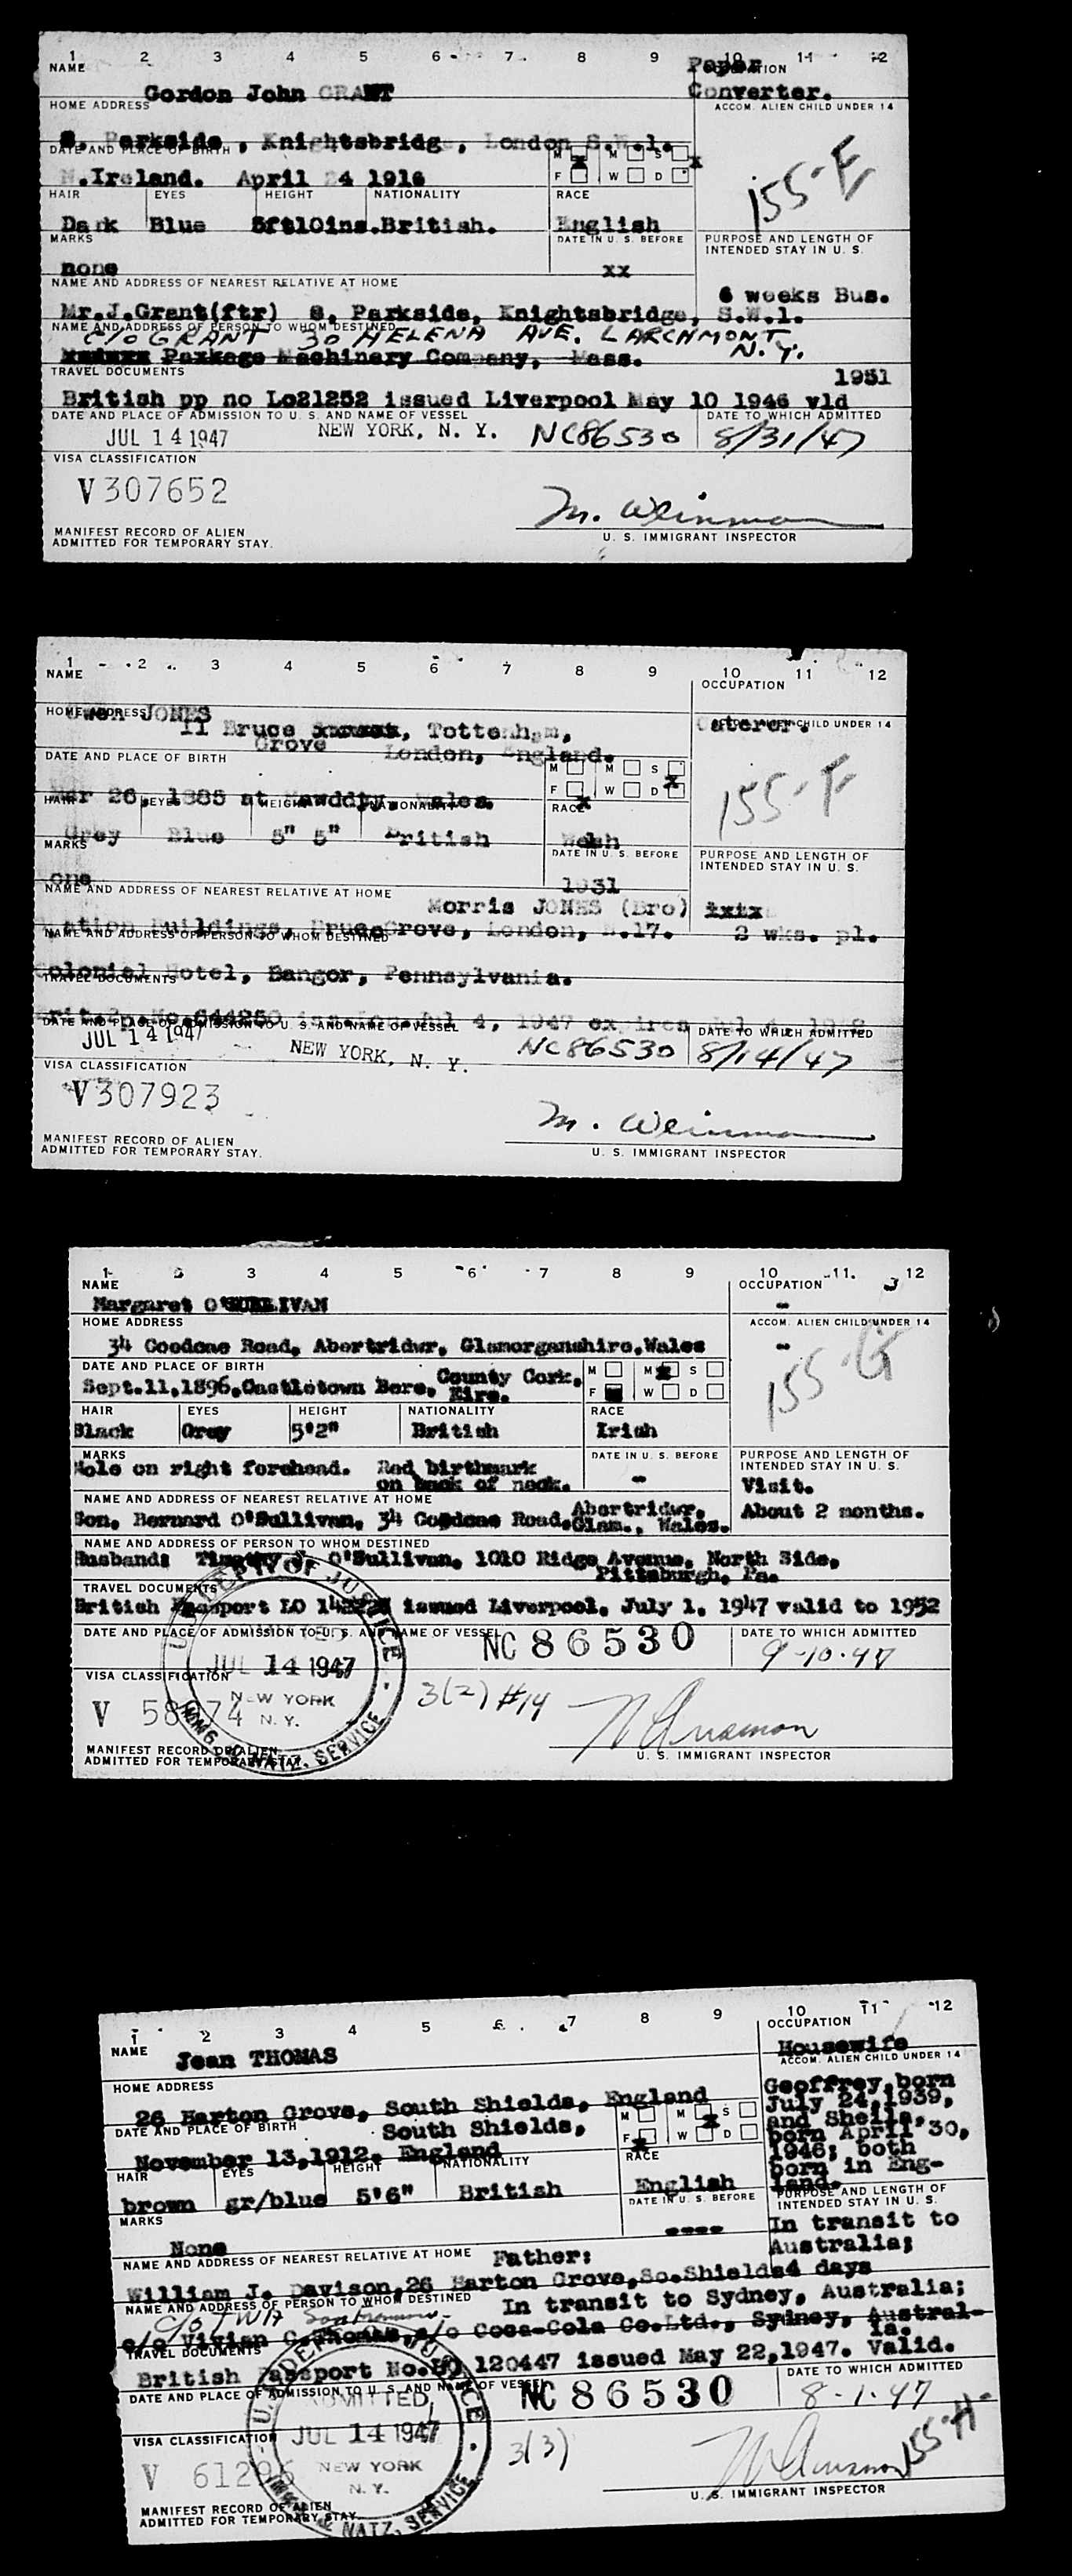 1 2 3 4 5 6 7 8 9 10 11 12
NAME
OCCUPATION
Paper
Converter.
Gordon John GRANT
HOME ADDRESS
ACCOM. ALIEN CHILD UNDER 14
8, Parkside, Knightsbridge, London S.W.1.
DATE AND PLACE OF BIRTH
M M S
x x
F W D
N.Ireland. April 24 1916
155-E
HAIR EYES HEIGHT NATIONALITY RACE
Dark Blue 5ft10ins. British. English
MARKS
DATE IN U. S. BEFORE
PURPOSE AND LENGTH OF
INTENDED STAY IN U. S.
none xx
NAME AND ADDRESS OF NEAREST RELATIVE AT HOME
6 weeks Bus.
Mr.J.Grant(ftr) 8, Parkside, Knightsbridge, S.W.1.
NAME AND ADDRESS OF PERSON TO WHOM DESTINED
C/O GRANT 30 HELENA AVE. LARCHMONT
N.Y.
Package Machinery Company, Mass.
TRAVEL DOCUMENTS
1951
British pp no Lo21252 issued Liverpool May 10 1946 vld
DATE AND PLACE OF ADMISSION TO U. S. AND NAME OF VESSEL
DATE TO WHICH ADMITTED
JUL 14 1947 NEW YORK, N. Y. NC86530 8/31/47
VISA CLASSIFICATION
V307652
M. Weinman
MANIFEST RECORD OF ALIEN
ADMITTED FOR TEMPORARY STAY.
U. S. IMMIGRANT INSPECTOR
1 2 3 4 5 6 7 8 9 10 11 12
NAME
OCCUPATION
Owen JONES
HOME ADDRESS
ACCOM. ALIEN CHILD UNDER 14
Caterer.
11 Bruce Tottenham,
Grove London, England.
DATE AND PLACE OF BIRTH
M M S
x
F W D
x
155-F
Mar 26, 1885 at Wales.
HAIR EYES HEIGHT NATIONALITY RACE
Grey Blue 5" 5" British Welsh
MARKS
DATE IN U. S. BEFORE
PURPOSE AND LENGTH OF
INTENDED STAY IN U. S.
1931
NAME AND ADDRESS OF NEAREST RELATIVE AT HOME
Morris JONES (Bro)
Station Buildings, Bruce Grove, London, N.17. 2 wks. pl.
NAME AND ADDRESS OF PERSON TO WHOM DESTINED
Colonial Hotel, Bangor, Pennsylvania.
TRAVEL DOCUMENTS
644250 Jul 4, 1947 expires
DATE AND PLACE OF ADMISSION TO U. S. AND NAME OF VESSEL
DATE TO WHICH ADMITTED
JUL 14 1947 NEW YORK, N. Y. NC86530 8/14/47
VISA CLASSIFICATION
V307923
M. Weinman
MANIFEST RECORD OF ALIEN
ADMITTED FOR TEMPORARY STAY.
U. S. IMMIGRANT INSPECTOR
1 2 3 4 5 6 7 8 9 10 11 12
NAME
OCCUPATION
Margaret O'SULLIVAN -
HOME ADDRESS
ACCOM. ALIEN CHILD UNDER 14
34 Coedcae Road, Abertridwr, Glamorganshire, Wales -
155-G
DATE AND PLACE OF BIRTH
M M S
F W D
Sept.11,1896, Castletown Bere, County Cork,
Eire.
HAIR EYES HEIGHT NATIONALITY RACE
Black Grey 5'2" British Irish
MARKS
DATE IN U. S. BEFORE
PURPOSE AND LENGTH OF
INTENDED STAY IN U. S.
Mole on right forehead. Red birthmark
on back of neck. -
Visit.
About 2 months.
NAME AND ADDRESS OF NEAREST RELATIVE AT HOME
Son, Bernard O'Sullivan, 34 Coedcae Road, Abertridwr,
Glam., Wales.
NAME AND ADDRESS OF PERSON TO WHOM DESTINED
Husband: Timothy J. O'Sullivan, 1010 Ridge Avenue, North Side,
Pittsburgh, Pa.
TRAVEL DOCUMENTS
British Passport LO issued Liverpool, July 1, 1947 valid to 1952
DATE AND PLACE OF ADMISSION TO U. S. AND NAME OF VESSEL
DATE TO WHICH ADMITTED
NC 86530 9-10-47
U. S. DEPT. OF JUSTICE
ADMITTED
JUL 14 1947
NEW YORK
N. Y.
IMMIG. & NATZ. SERVICE
VISA CLASSIFICATION
V 58 74
3(2) #14
MANIFEST RECORD OF ALIEN
ADMITTED FOR TEMPORARY STAY.
U. S. IMMIGRANT INSPECTOR
1 2 3 4 5 6 7 8 9 10 11 12
NAME
OCCUPATION
Jean THOMAS
Housewife
HOME ADDRESS
ACCOM. ALIEN CHILD UNDER 14
26 Harton Grove, South Shields, England
Geoffrey, born
July 24, 1939,
and Sheila,
born April 30,
1946; both
born in Eng-
land.
DATE AND PLACE OF BIRTH
M M S
x
F W D
x
South Shields,
November 13,1912. England
HAIR EYES HEIGHT NATIONALITY RACE
brown gr/blue 5'6" British English
MARKS
DATE IN U. S. BEFORE
PURPOSE AND LENGTH OF
INTENDED STAY IN U. S.
None ----
In transit to
Australia;
4 days
NAME AND ADDRESS OF NEAREST RELATIVE AT HOME
Father:
William J. Davison, 26 Harton Grove, So.Shields
NAME AND ADDRESS OF PERSON TO WHOM DESTINED
In transit to Sydney, Australia;
C/o TWA
c/o Vivian C. Thomas, c/o Coca-Cola Co.Ltd., Sydney, Austral-
ia.
TRAVEL DOCUMENTS
British Passport No. 120447 issued May 22,1947. Valid.
DATE AND PLACE OF ADMISSION TO U. S. AND NAME OF VESSEL
DATE TO WHICH ADMITTED
NC 86530 8-1-47
U. S. DEPT. OF JUSTICE
ADMITTED
JUL 14 1947
NEW YORK
N. Y.
IMMIG. & NATZ. SERVICE
VISA CLASSIFICATION
V 612 6
3(3)
155-H
MANIFEST RECORD OF ALIEN
ADMITTED FOR TEMPORARY STAY.
U. S. IMMIGRANT INSPECTOR